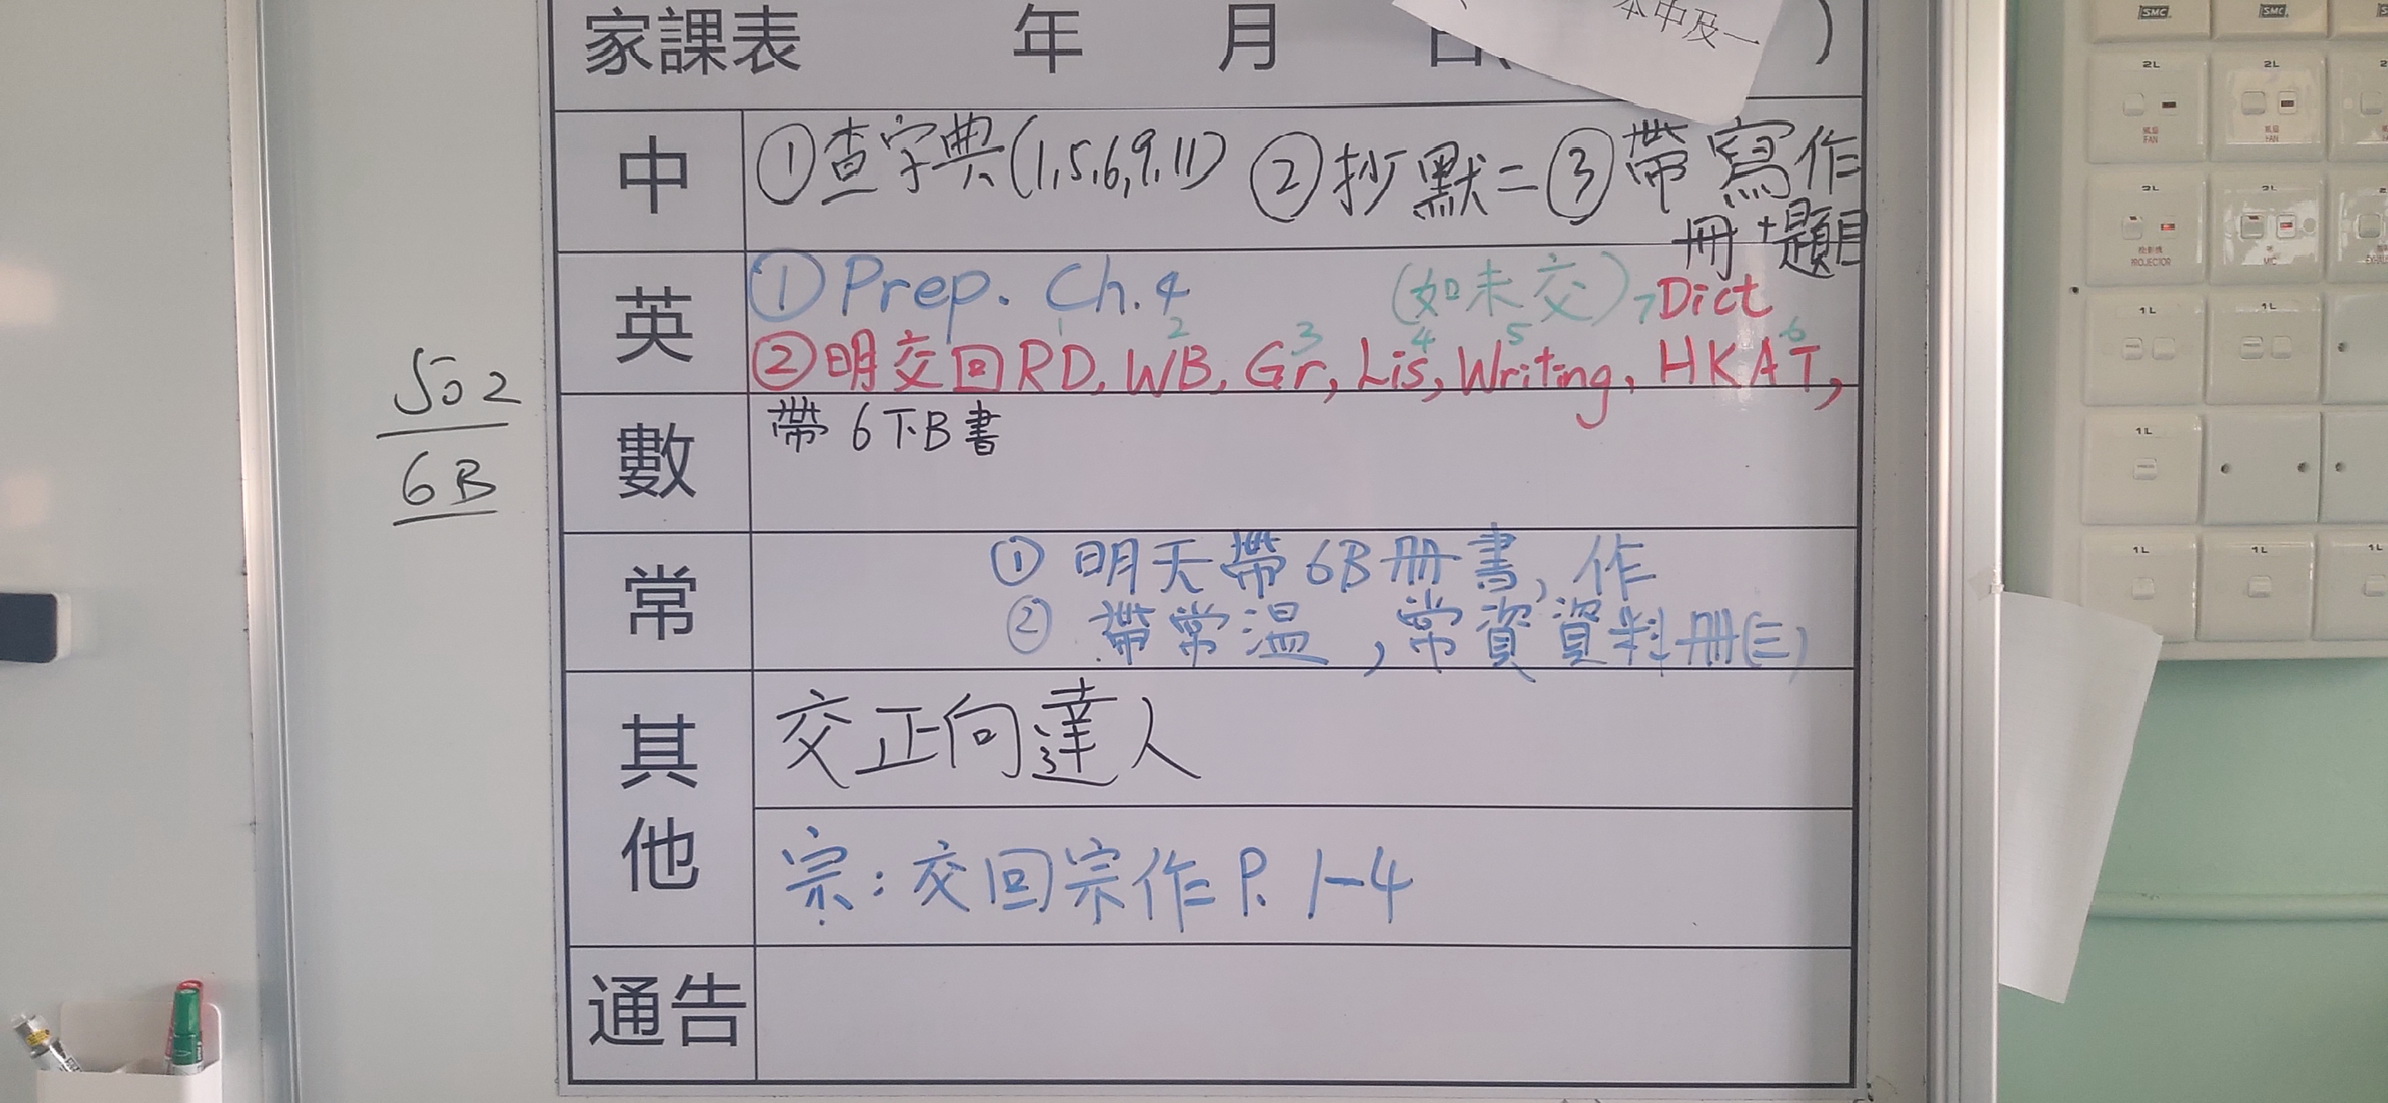 本中及一
家課表 年 月 日( )
中 ①查字典(1,5,6,9,11) ②抄默二 ③帶寫作
冊+題目
英 ①Prep. Ch.4 (如未交) 7Dict
1 2 3 4 5 6
②明交回RD, WB, Gr, Lis, Writing, HKAT,
數 帶6下B書
502
6B
常 ① 明天帶6B冊書, 作
② 帶常溫, 常資資料冊(三)
其他 交正向達人
宗: 交回宗作 P. 1-4
通告
SMC SMC
2L 2L 2
風扇 風扇
FAN FAN
2L 2L 2
投影機 咪
PROJECTOR MIC
1L 1L
1L
1L 1L 1L